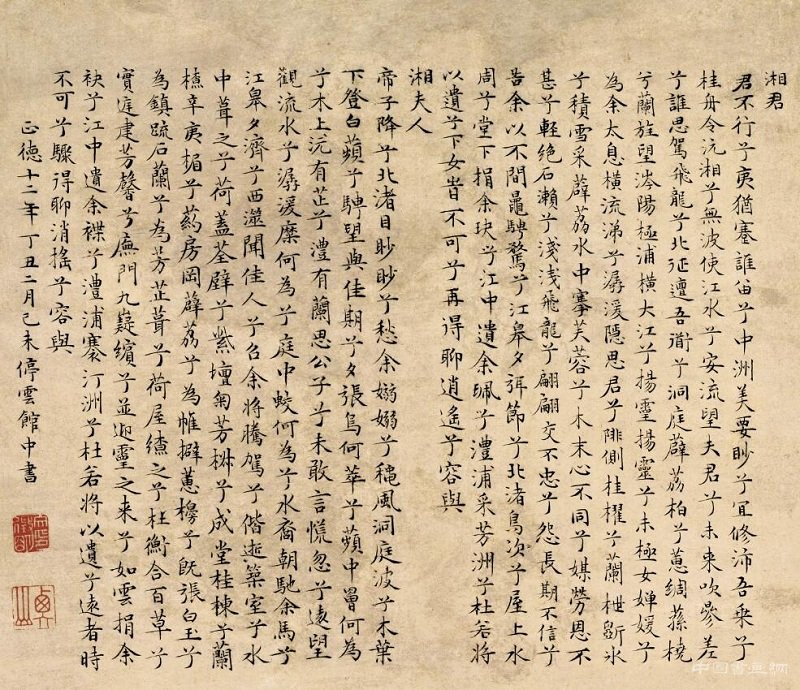 湘君
君不行兮夷猶蹇誰留兮中洲美要眇兮宜修沛吾乘兮
桂舟令沅湘兮無波使江水兮安流望夫君兮未來吹參差
兮誰思駕飛龍兮北征邅吾道兮洞庭薜荔柏兮蕙綢蓀橈
兮蘭旌望涔陽極浦橫大江兮揚靈揚靈兮未極女嬋媛兮
為余太息橫流涕兮潺湲隱思君兮陫側桂櫂兮蘭枻斲冰
兮積雪采薜荔水中搴芙蓉兮木末心不同兮媒勞恩不
甚兮輕絕石瀨兮淺淺飛龍兮翩翩交不忠兮怨長期不信兮
告余以不間鼂騁騖兮江皋夕弭節兮北渚鳥次兮屋上水
周兮堂下捐余玦兮江中遺余珮兮澧浦采芳洲兮杜若將
以遺兮下女旹不可兮再得聊逍遙兮容與
湘夫人
帝子降兮北渚目眇眇兮愁余嫋嫋兮穐風洞庭波兮木葉
下登白蘋兮騁望與佳期兮夕張鳥何萃兮蘋中罾何為
兮木上沅有芷兮澧有蘭思公子兮未敢言慌忽兮遠望
觀流水兮潺湲麋何為兮庭中蛟何為兮水裔朝馳余馬兮
江皋夕濟兮西澨聞佳人兮召余將騰駕兮偕逝築室兮水
中葺之兮荷蓋荃壁兮紫壇匊芳椒兮成堂桂棟兮蘭
橑辛夷楣兮葯房罔薜荔兮為帷擗蕙櫋兮既張白玉兮
為鎮疏石蘭兮為芳芷葺兮荷屋繚之兮杜衡合百草兮
實庭建芳馨兮廡門九嶷繽兮並迎靈之來兮如雲捐余
袂兮江中遺余褋兮澧浦搴汀洲兮杜若將以遺兮遠者時
不可兮驟得聊消搖兮容與
正德十二年丁丑二月己未停雲館中書